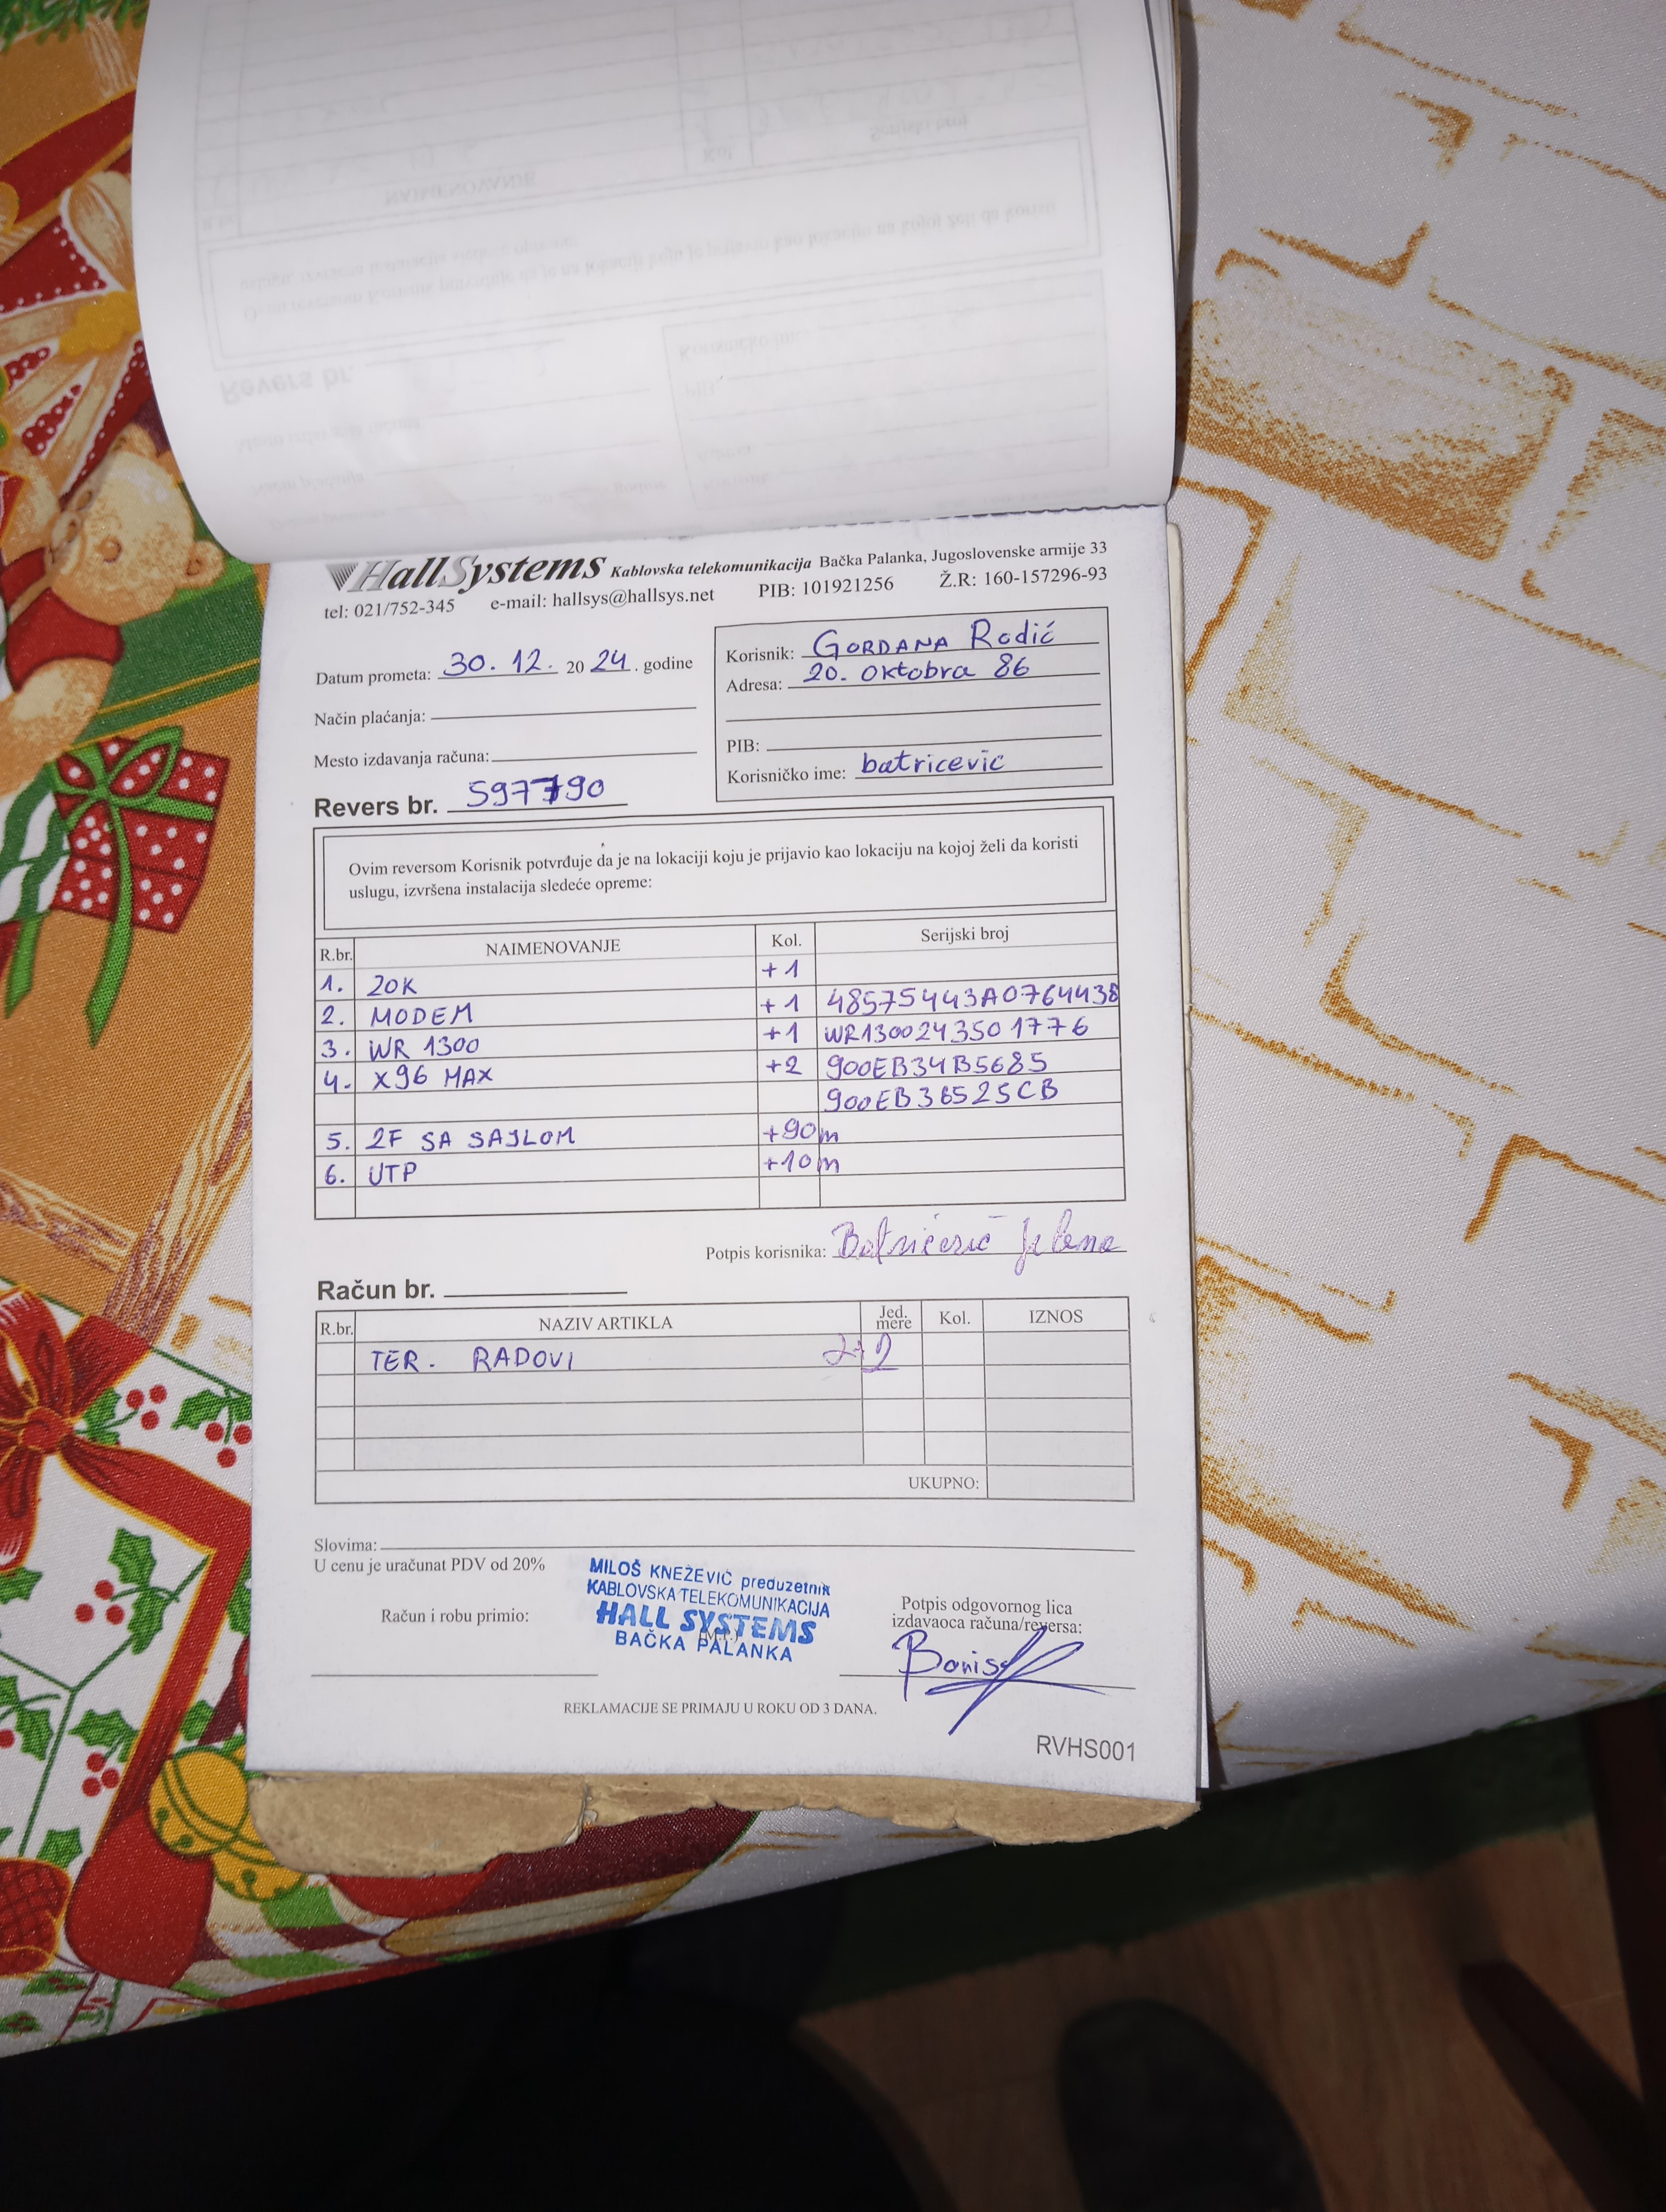 HallSystems Kablovska telekomunikacija Bačka Palanka, Jugoslovenske armije 33
tel: 021/752-345 e-mail: hallsys@hallsys.net PIB: 101921256 Ž.R: 160-157296-93
Datum prometa: 30. 12. 20 24 . godine
Način plaćanja:
Mesto izdavanja računa:
Revers br. 597790
Korisnik: GORDANA Rodić
Adresa: 20. oktobra 86
PIB:
Korisničko ime: batricevic
Ovim reversom Korisnik potvrđuje da je na lokaciji koju je prijavio kao lokaciju na kojoj želi da koristi
uslugu, izvršena instalacija sledeće opreme:
R.br. NAIMENOVANJE Kol. Serijski broj
1. ZOK +1
2. MODEM +1 48575443A0764438
3. WR 1300 +1 WR1300243501776
4. X96 MAX +2 900EB34B5685
900EB36525CB
5. 2F SA SAJLOM +90m
6. UTP +10m
Potpis korisnika: Batrićević Jelena
Račun br.
R.br. NAZIV ARTIKLA Jed. mere Kol. IZNOS
TER. RADOVI
UKUPNO:
Slovima:
U cenu je uračunat PDV od 20%
Račun i robu primio:
MILOŠ KNEŽEVIĆ preduzetnik
KABLOVSKA TELEKOMUNIKACIJA
HALL SYSTEMS
BAČKA PALANKA
(M.P.)
Potpis odgovornog lica
izdavaoca računa/reversa:
REKLAMACIJE SE PRIMAJU U ROKU OD 3 DANA.
RVHS001